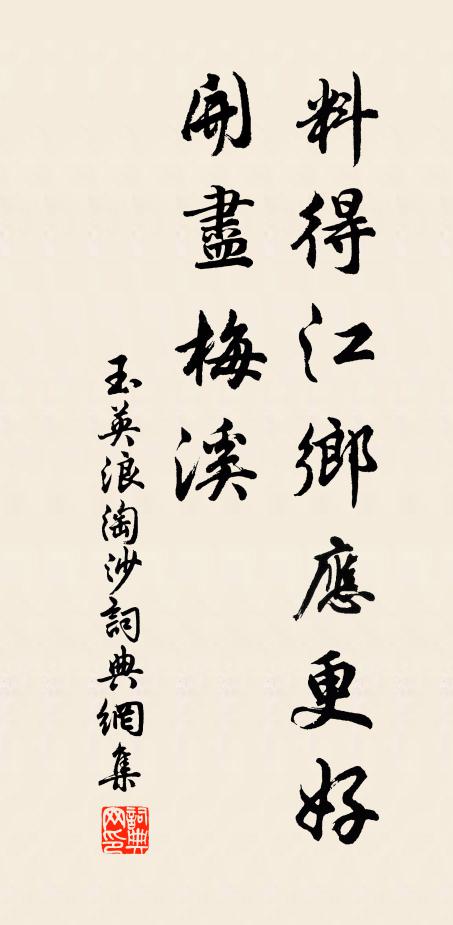 料得江鄉應更好
開盡梅溪
玉英浪淘沙詞典網集
詞典
网印